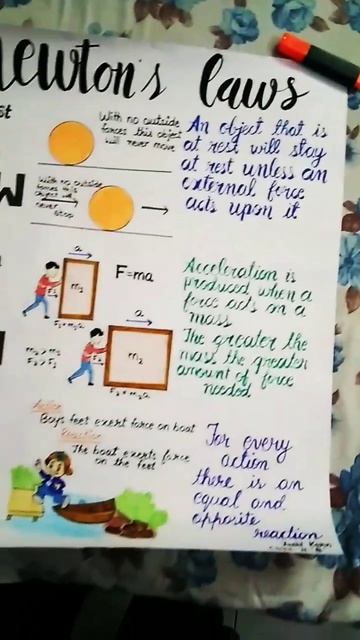 Newton's laws
st
With no outside
forces this object
will never move
An object that is
at rest will stay
at rest unless an
external force
acts upon it
With no outside
never
stop
a
m₁
F=ma
a
m₂
F₂ = m₂a
Acceleration is
produced when a
force acts on a
mass
The greater the
mass the greater
amount of force
needed
Action
Boys feet exert force on boat
Reaction
The boat exerts force
on the feet
For every
action
there is an
equal and
opposite
reaction